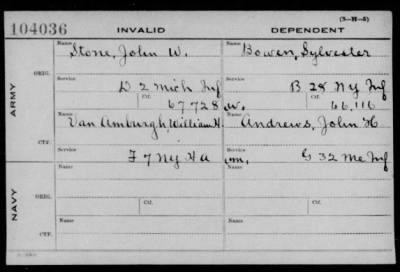 (3-H-5)
104036 INVALID DEPENDENT
Name Stone, John W. Name Bowen, Sylvester
ORIG.
Service Service
D 2 Mich Inf B 28 Ny Inf
Ctf. Ctf.
67728 w. 66,116
ARMY
Name Name
Van Amburgh, William H. Andrews, John H
CTF.
Service Service
F 7 Ny H a m, G 32 Me Inf
Name Name
ORIG.
NAVY
Ctf. Ctf.
Name Name
CTF.